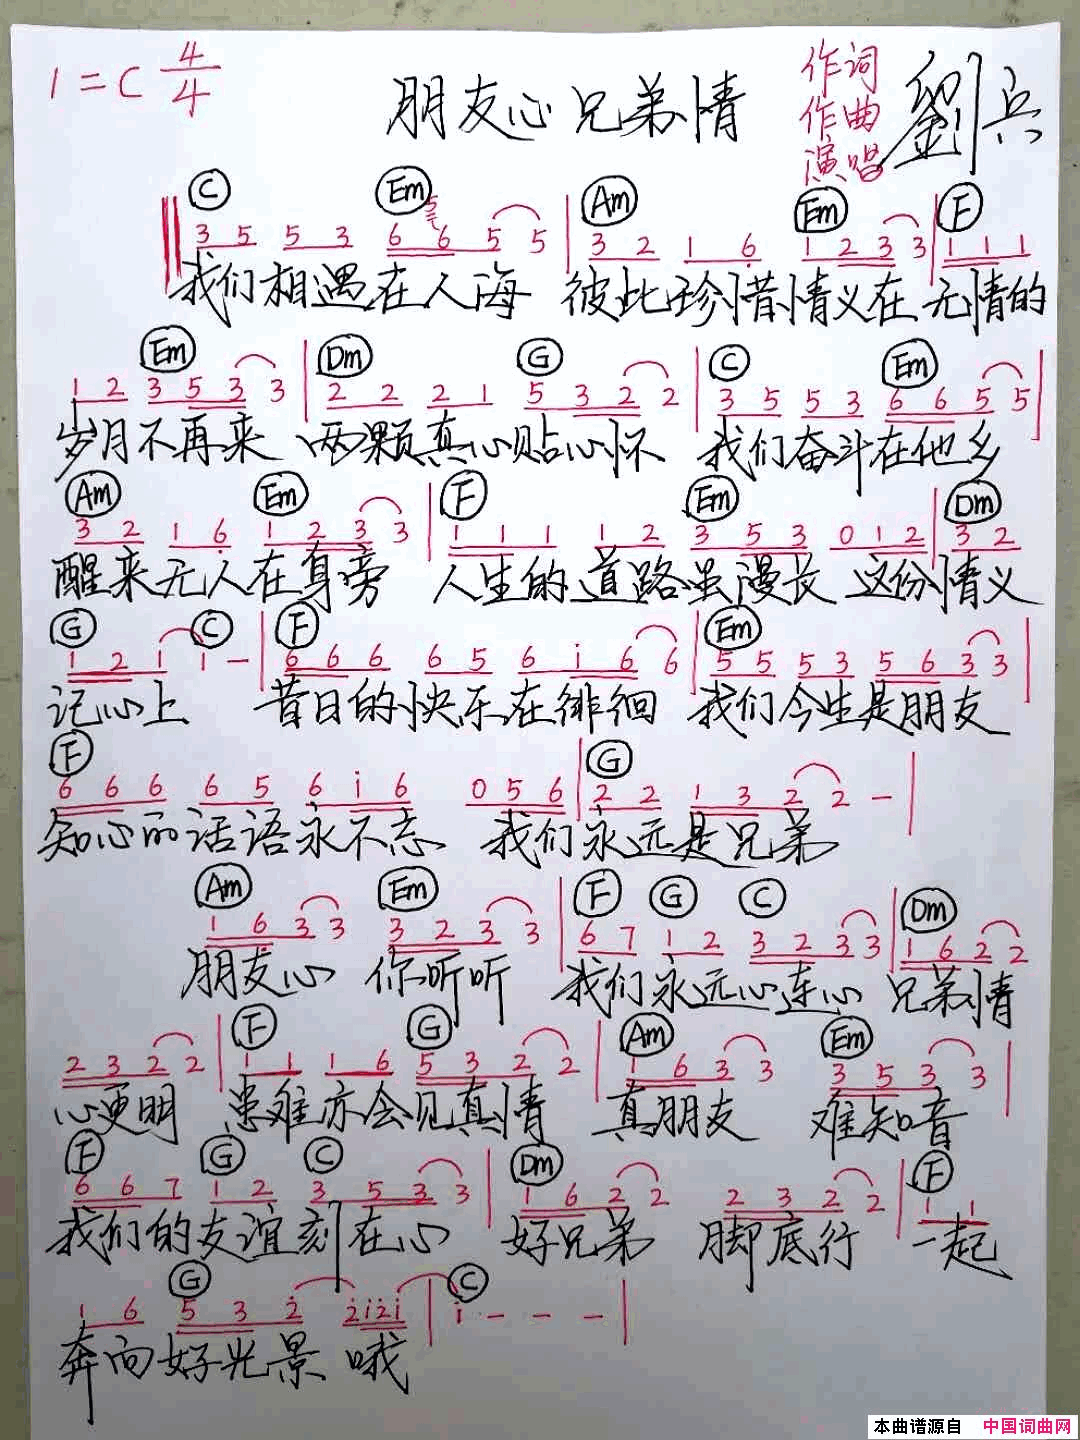 1=C 4/4 朋友心兄弟情 作词 作曲 演唱 劉兵
C Em Am Em F
3 5 5 3 6 6 5 5 | 3 2 1 6 1 2 3 3 | 1 1 1
我们相遇在人海 彼此珍惜情义在 无情的
Em Dm G C Em
1 2 3 5 3 3 | 2 2 2 1 5 3 2 2 | 3 5 5 3 6 6 5 5 |
岁月不再来 两颗真心贴心怀 我们奋斗在他乡
Am Em F Em Dm
3 2 1 6 1 2 3 3 | 1 1 1 1 2 3 5 3 0 1 2 | 3 2
醒来无人在身旁 人生的道路虽漫长 这份情义
G C F Em
1 2 1 1 - | 6 6 6 6 5 6 i 6 6 | 5 5 5 3 5 6 3 3 |
记心上 昔日的快乐在徘徊 我们今生是朋友
F G
6 6 6 6 5 6 i 6 0 5 6 | 2 2 1 3 2 2 - |
知心的话语永不忘 我们永远是兄弟
Am Em F G C Dm
1 6 3 3 3 2 3 3 | 6 7 1 2 3 2 3 3 | 1 6 2 2
朋友心 你听听 我们永远心连心 兄弟情
F G Am Em
2 3 2 2 | 1 1 1 6 5 3 2 2 | 1 6 3 3 3 5 3 3 |
心更明 患难亦会见真情 真朋友 难知音
F G C Dm F
6 6 7 1 2 3 5 3 3 | 1 6 2 2 2 3 2 2 | 1 1
我们的友谊刻在心 好兄弟 脚底行 一起
G C
1 6 5 3 2 2 i 2 i | i - - - |
奔向好光景 哦
本曲谱源自 中国词曲网